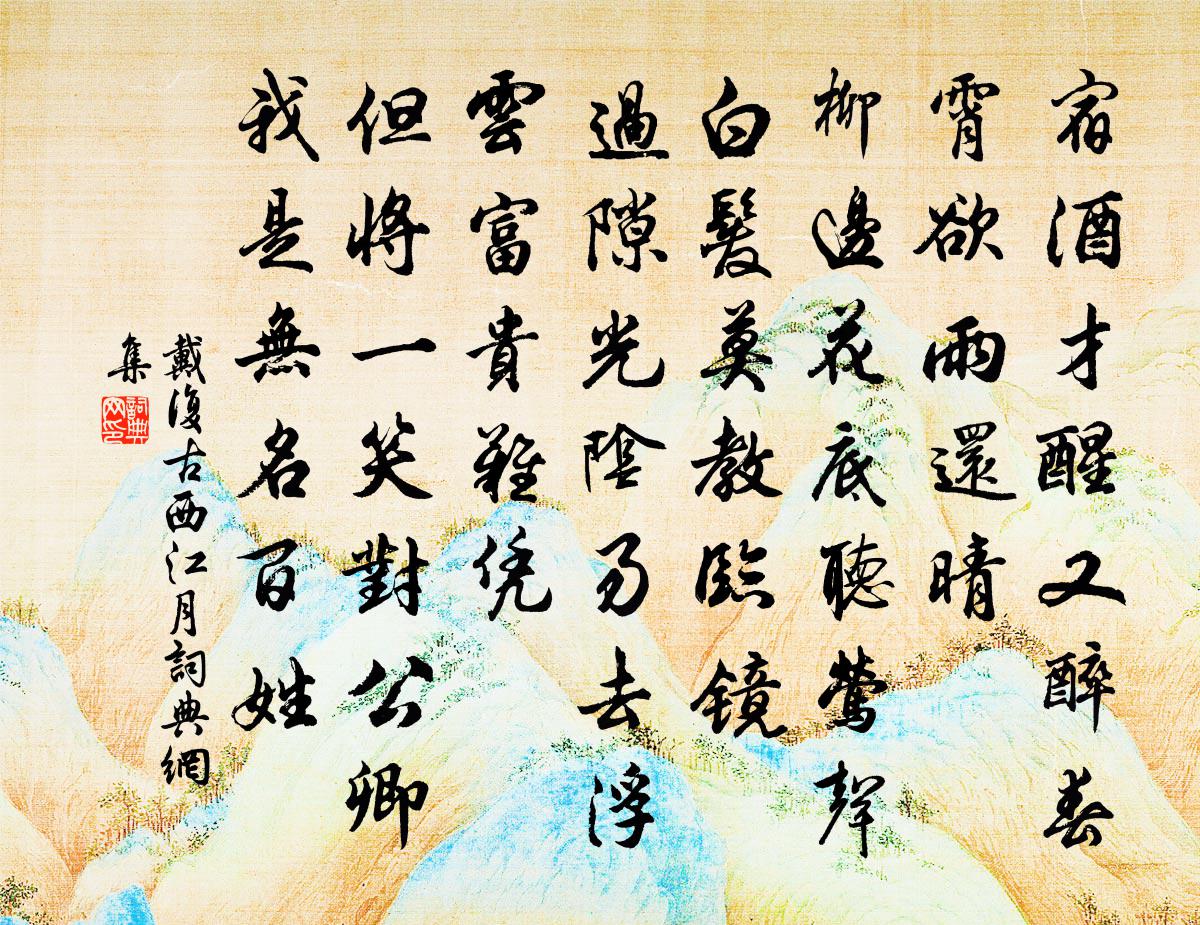 宿酒才醒又醉春
霄欲雨還晴
柳邊花底聽鶯聲
白髮莫教臨鏡
過隙光陰易去浮
雲富貴難凭
但將一笑對公卿
我是無名百姓
戴復古西江月詞典網
集
詞典
网印